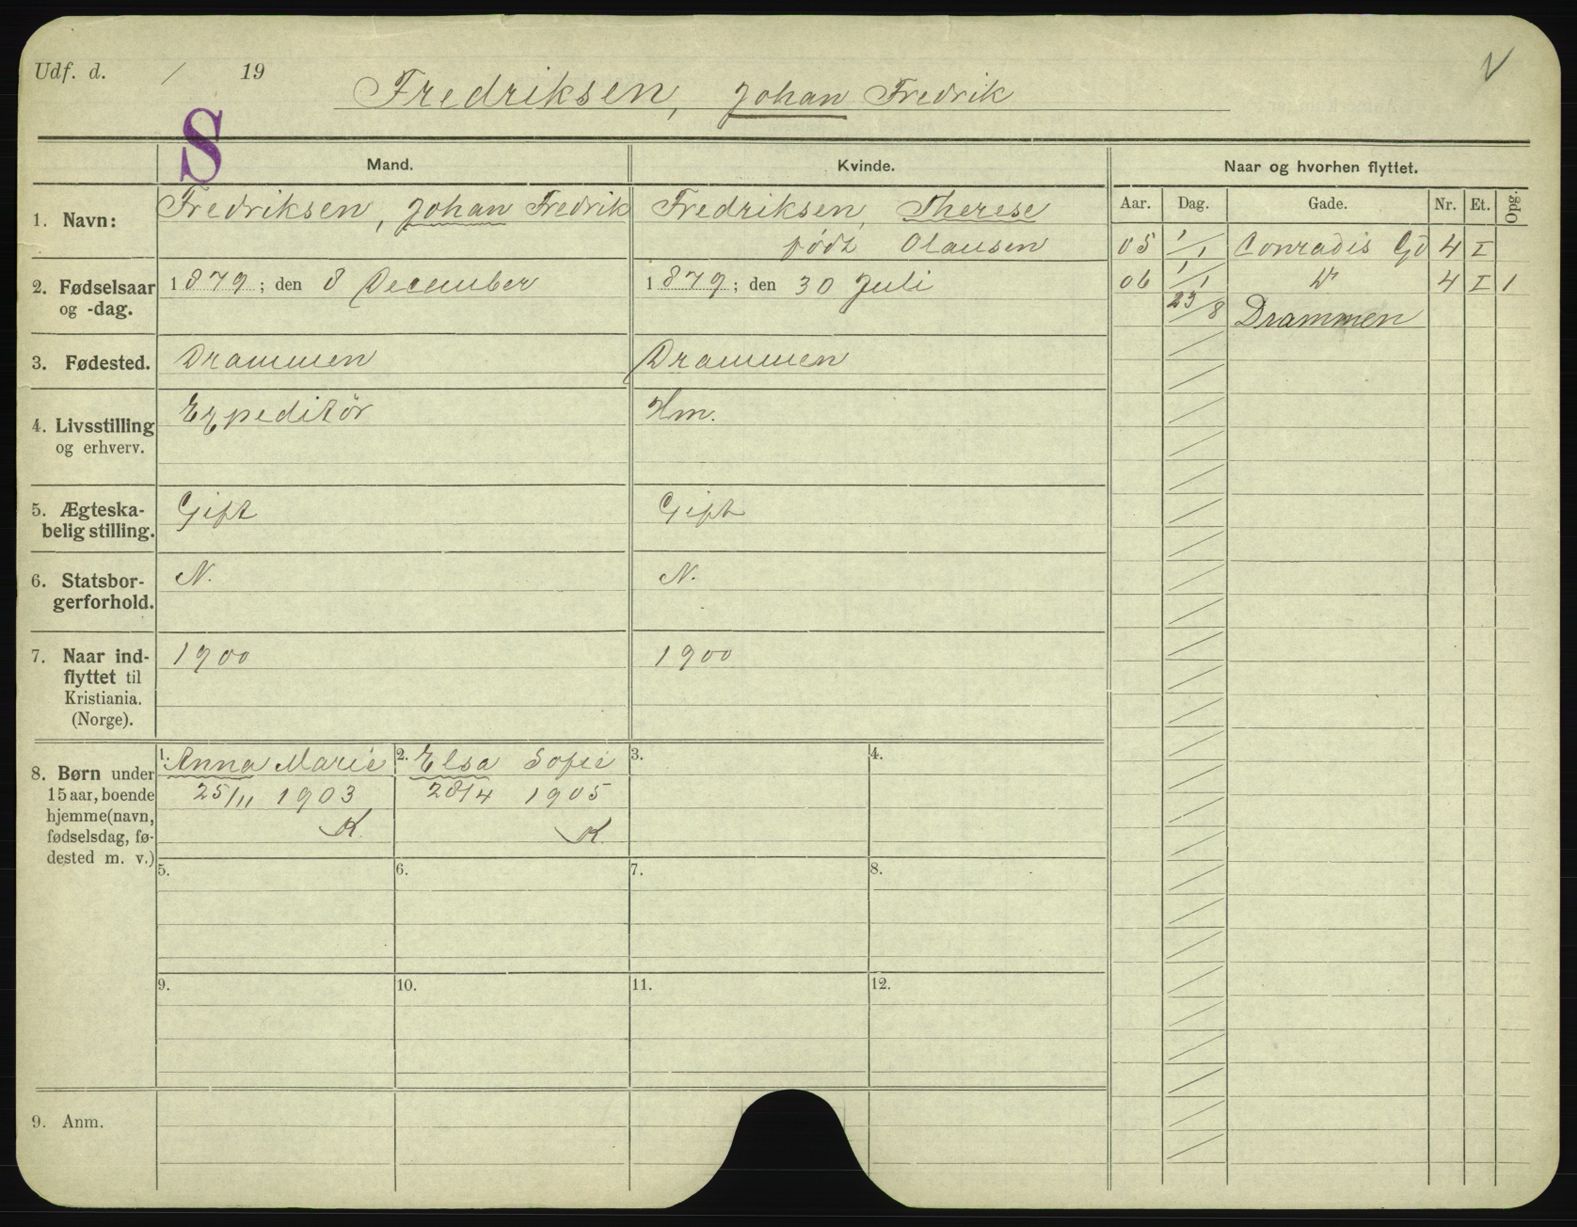 Udf. d. / 19
Fredriksen, Johan Fredrik
S
Mand. Kvinde. Naar og hvorhen flyttet.
Aar. Dag. Gade. Nr. Et. Opg.
1. Navn: Fredriksen, Johan Fredrik Fredriksen, Therese
født Olausen
05 1/1 Conradis Gd 4 I
2. Fødselsaar og -dag. 1879; den 8 December 1879; den 30 Juli
06 1/1 4 I 1
23/8 Drammen
3. Fødested. Drammen Drammen
4. Livsstilling og erhverv. Expeditør Hm.
5. Ægteska-
belig stilling. Gift Gift
6. Statsbor-
gerforhold. N. N.
7. Naar ind-
flyttet til
Kristiania.
(Norge). 1900 1900
8. Børn under
15 aar, boende
hjemme (navn,
fødselsdag, fø-
dested m. v.)
1. Anna Marie
25/11 1903
K
2. Elsa Sofie
28/4 1905
K.
3. 4.
5. 6. 7. 8.
9. 10. 11. 12.
9. Anm.